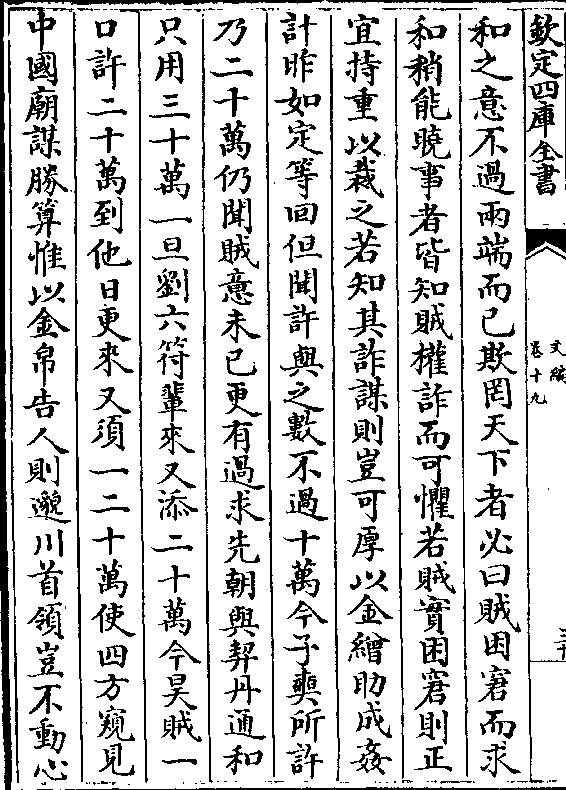 欽定四庫全書
文編
卷十九
和之意不過兩端而已欺罔天下者必曰賊困窘而求
和稍能曉事者皆知賊權詐而可懼若賊實困窘則正
宜持重以裁之若知其詐謀則豈可厚以金繒助成姦
計昨如定等回但聞許與之數不過十萬今子奭所許
乃二十萬仍聞賊意未已更有過求先朝與契丹通和
只用三十萬一旦劉六符輩來又添二十萬今昊賊一
口許二十萬到他日更來又須一二十萬使四方窺見
中國廟謀勝算惟以金帛告人則邈川首領豈不動心